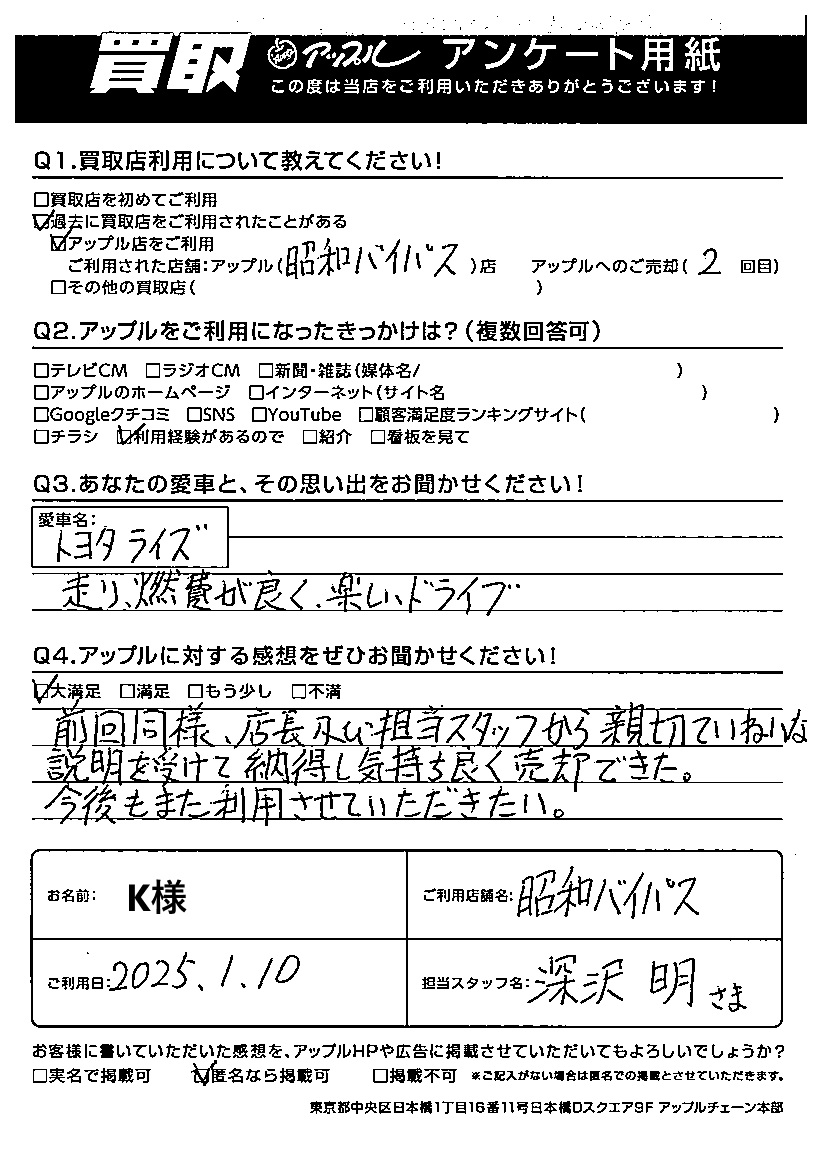 買取 アップル アンケート用紙
この度は当店をご利用いただきありがとうございます!
Q1.買取店利用について教えてください!
□買取店を初めてご利用
☑過去に買取店をご利用されたことがある
☑アップル店をご利用
ご利用された店舗:アップル(昭和バイパス)店 アップルへのご売却( 2 回目)
□その他の買取店( )
Q2.アップルをご利用になったきっかけは?(複数回答可)
□テレビCM □ラジオCM □新聞・雑誌(媒体名/ )
□アップルのホームページ □インターネット(サイト名 )
□Googleクチコミ □SNS □YouTube □顧客満足度ランキングサイト( )
□チラシ ☑利用経験があるので □紹介 □看板を見て
Q3.あなたの愛車と、その思い出をお聞かせください!
愛車名:
トヨタ ライズ
走り、燃費が良く、楽しいドライブ
Q4.アップルに対する感想をぜひお聞かせください!
☑大満足 □満足 □もう少し □不満
前回同様、店長及び担当スタッフから親切ていねいな
説明を受けて納得し気持ち良く売却できた。
今後もまた利用させていただきたい。
お名前: K様 ご利用店舗名:昭和バイパス
ご利用日:2025.1.10 担当スタッフ名:深沢 明さま
お客様に書いていただいた感想を、アップルHPや広告に掲載させていただいてもよろしいでしょうか?
□実名で掲載可 ☑匿名なら掲載可 □掲載不可 ※ご記入がない場合は匿名での掲載とさせていただきます。
東京都中央区日本橋1丁目16番11号日本橋Dスクエア9F アップルチェーン本部